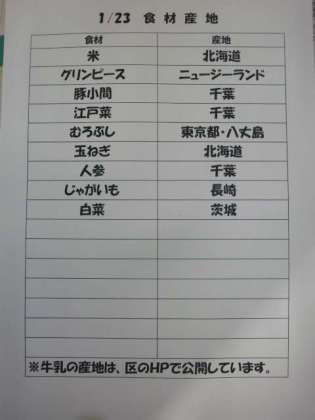 1/23 食材産地
食材 産地
米 北海道
グリンピース ニュージーランド
豚小間 千葉
江戸菜 千葉
むろぶし 東京都・八丈島
玉ねぎ 北海道
人参 千葉
じゃがいも 長崎
白菜 茨城
※牛乳の産地は、区のHPで公開しています。